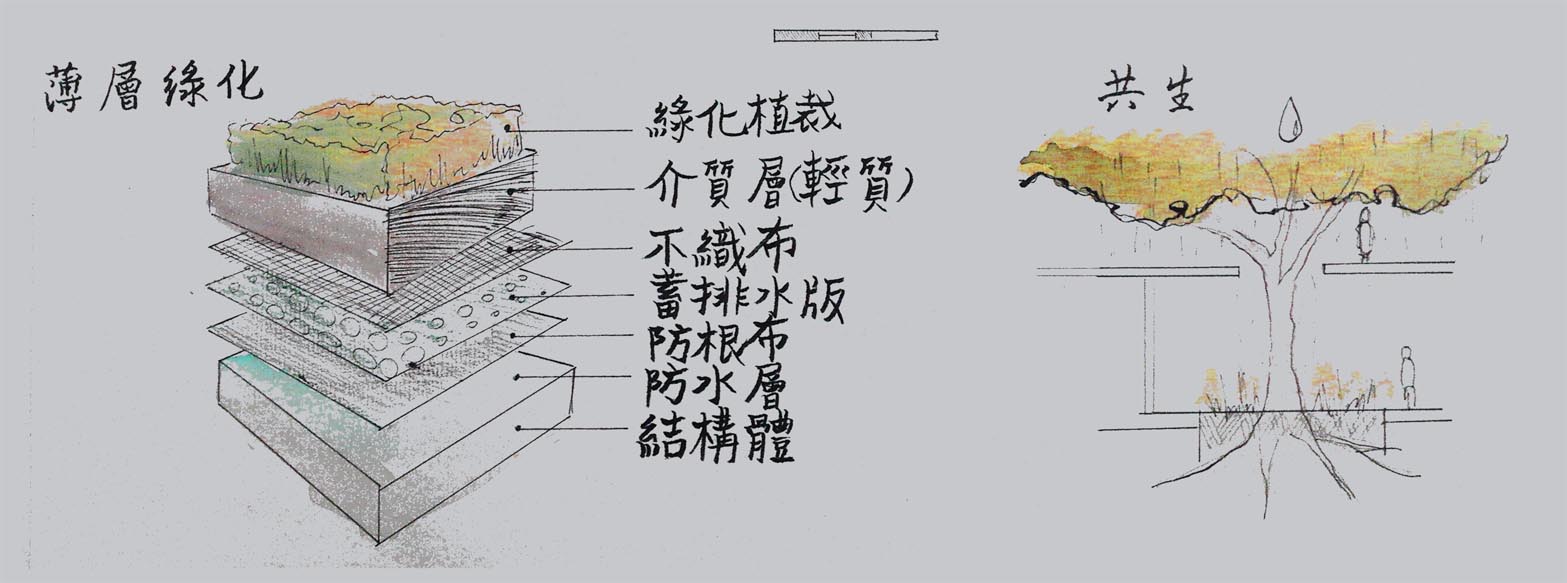 薄層綠化
綠化植栽
介質層(輕質)
不織布
蓄排水版
防根布
防水層
結構體
共生